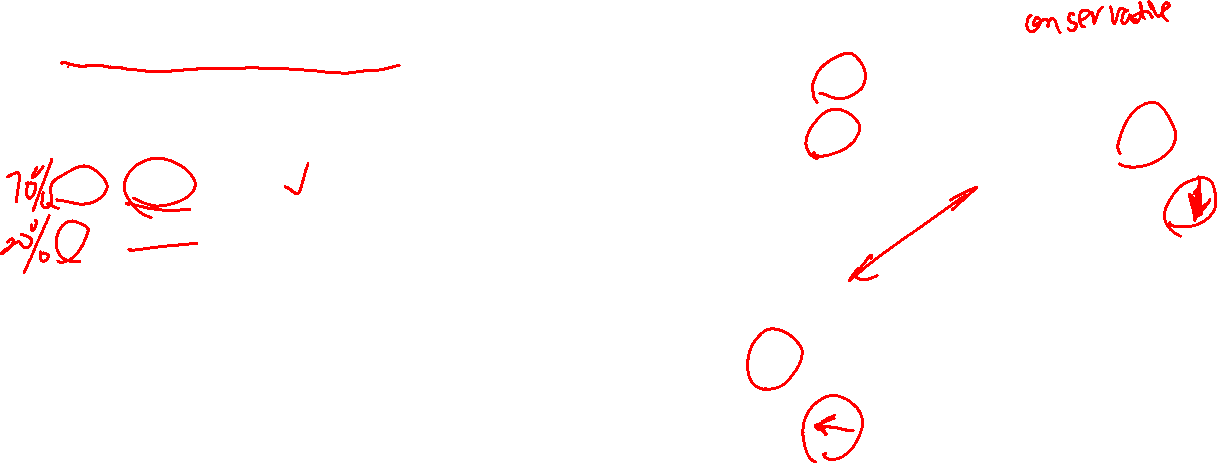 conservative
70%
20%